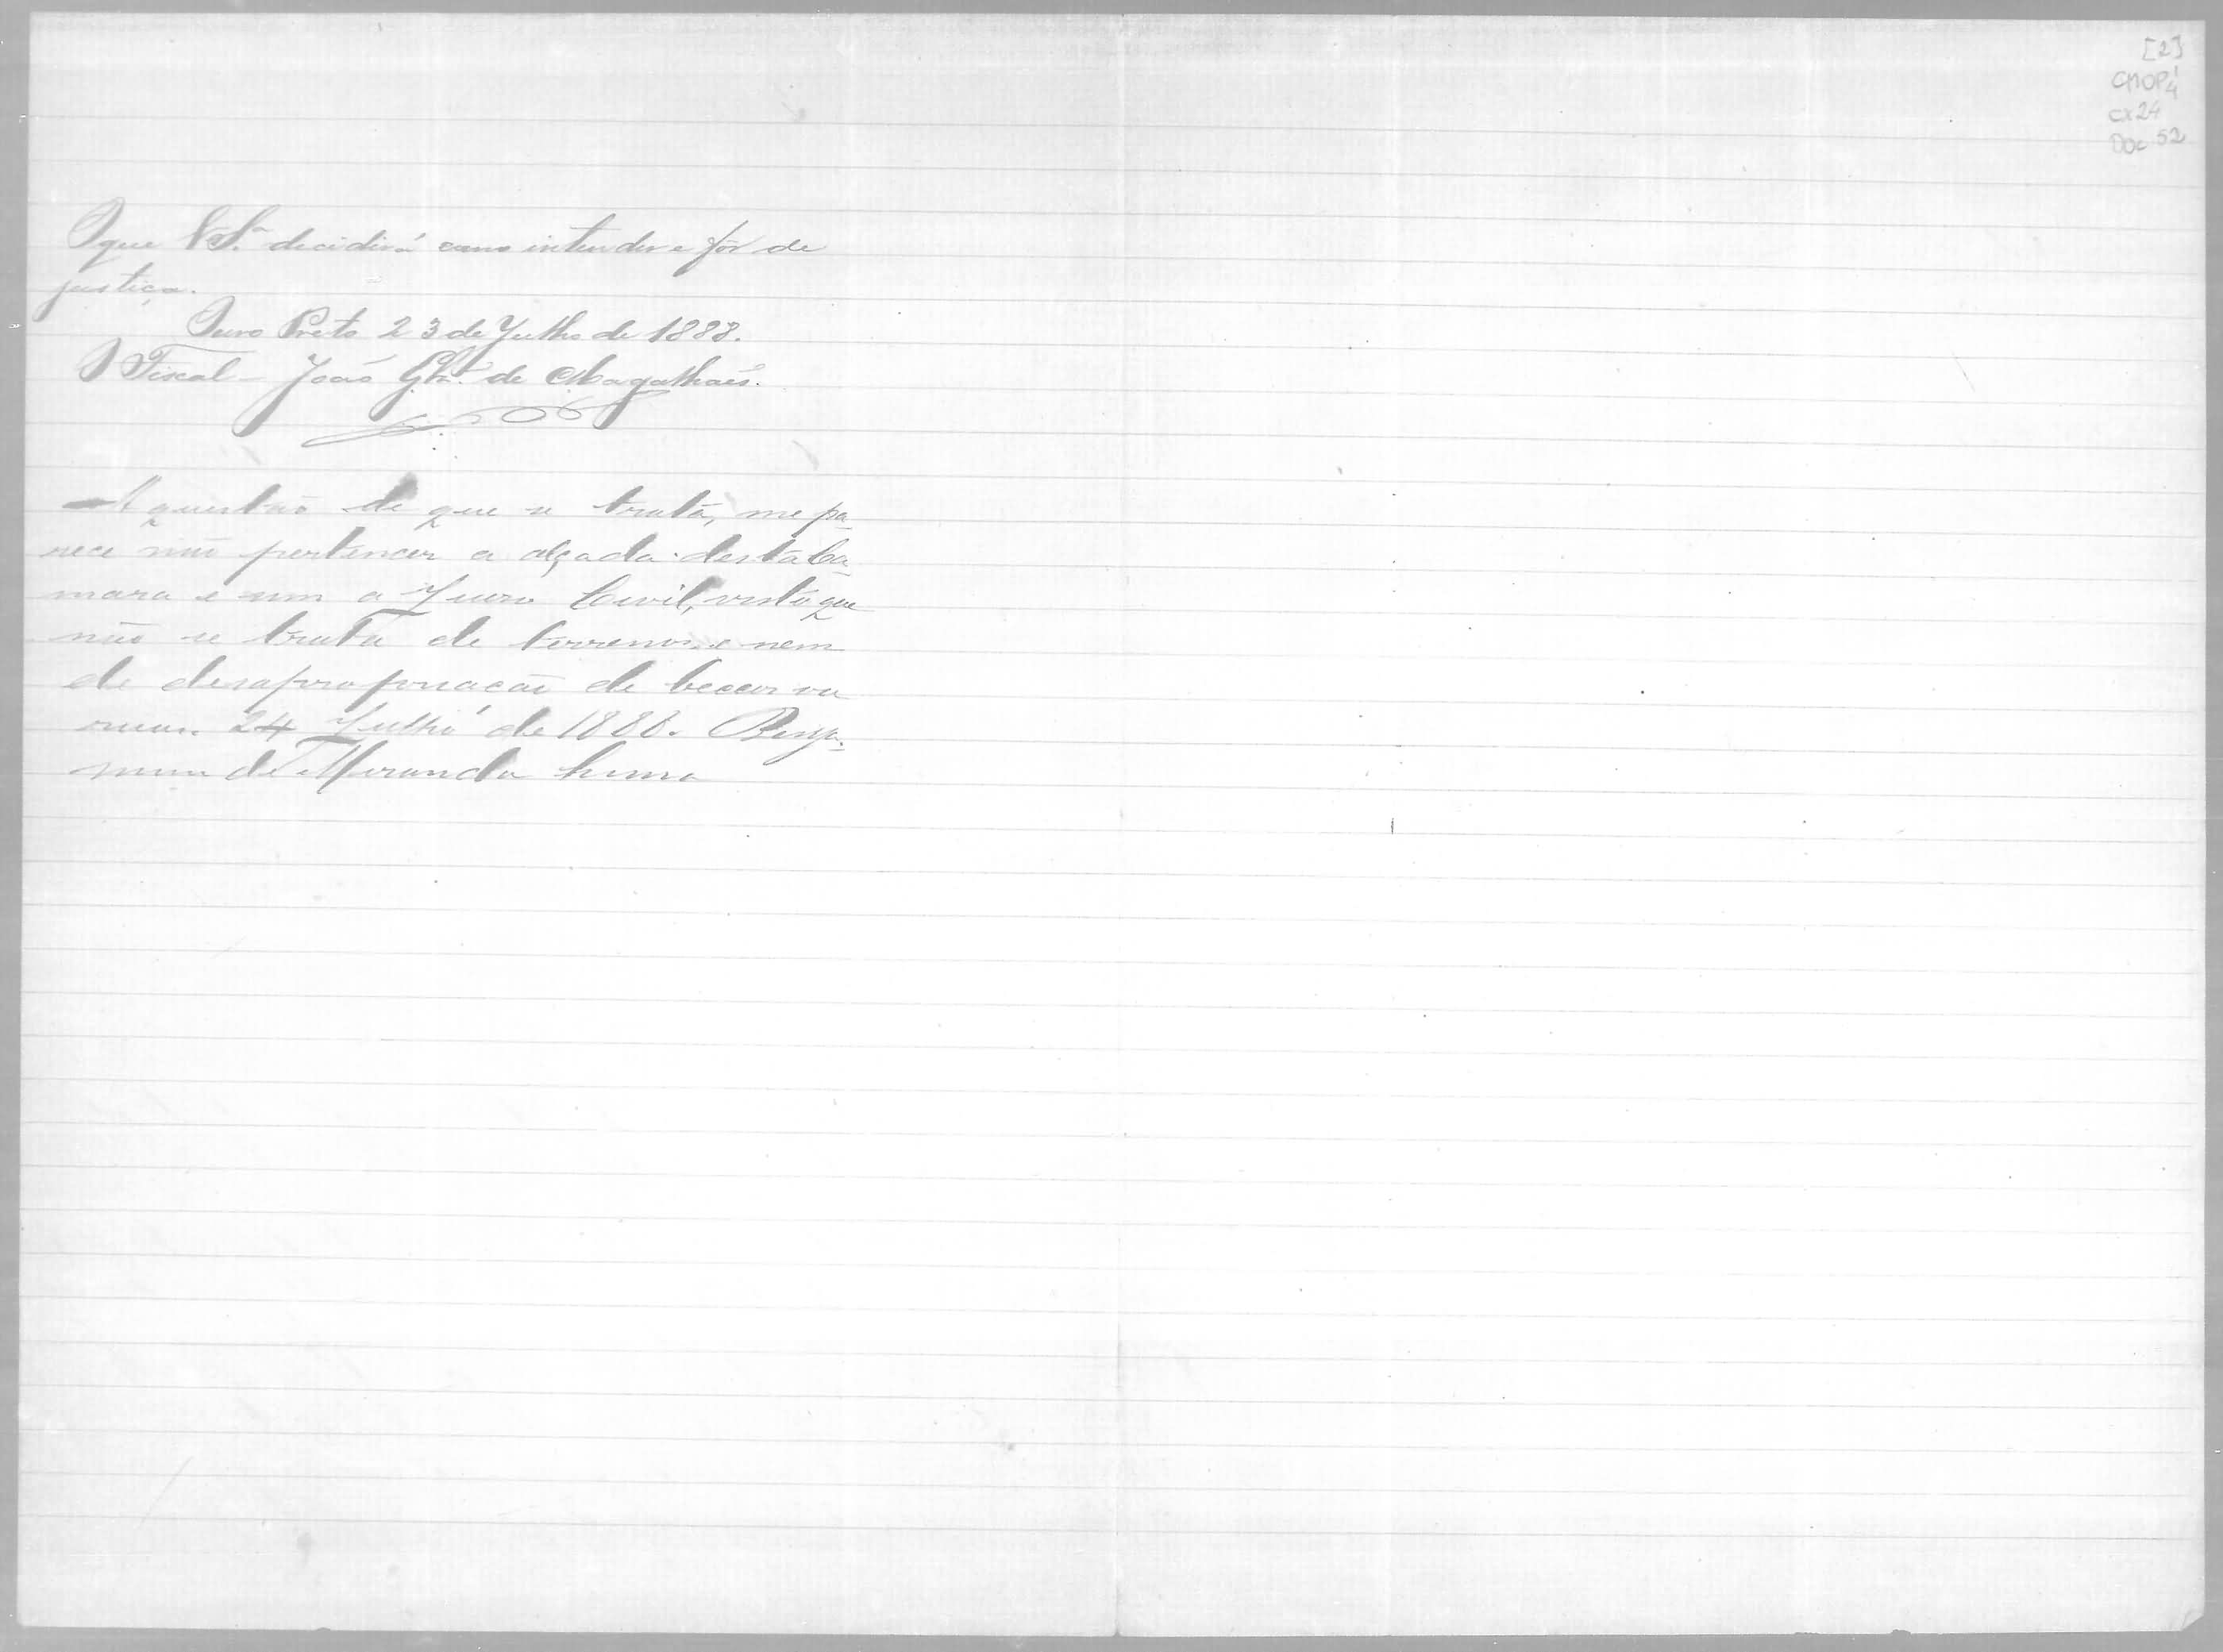 [2]
CMOP 1/4
cx 24
Doc 52
O que V Sª. decidirá como intender e fôr de
justiça.
Ouro Preto 23 de Julho de 1888.
O Fiscal - João de Magalhaẽs.
A questão de que se trata, me pa-
rece não pertencer a alçada desta Ca-
mara e sim a Juizo Civil, visto que
não se trata de terrenos e nem
de desapropriacão de beccos ou
ruas. 24 Julho de 1888. Benja-
mim de Miranda Lima